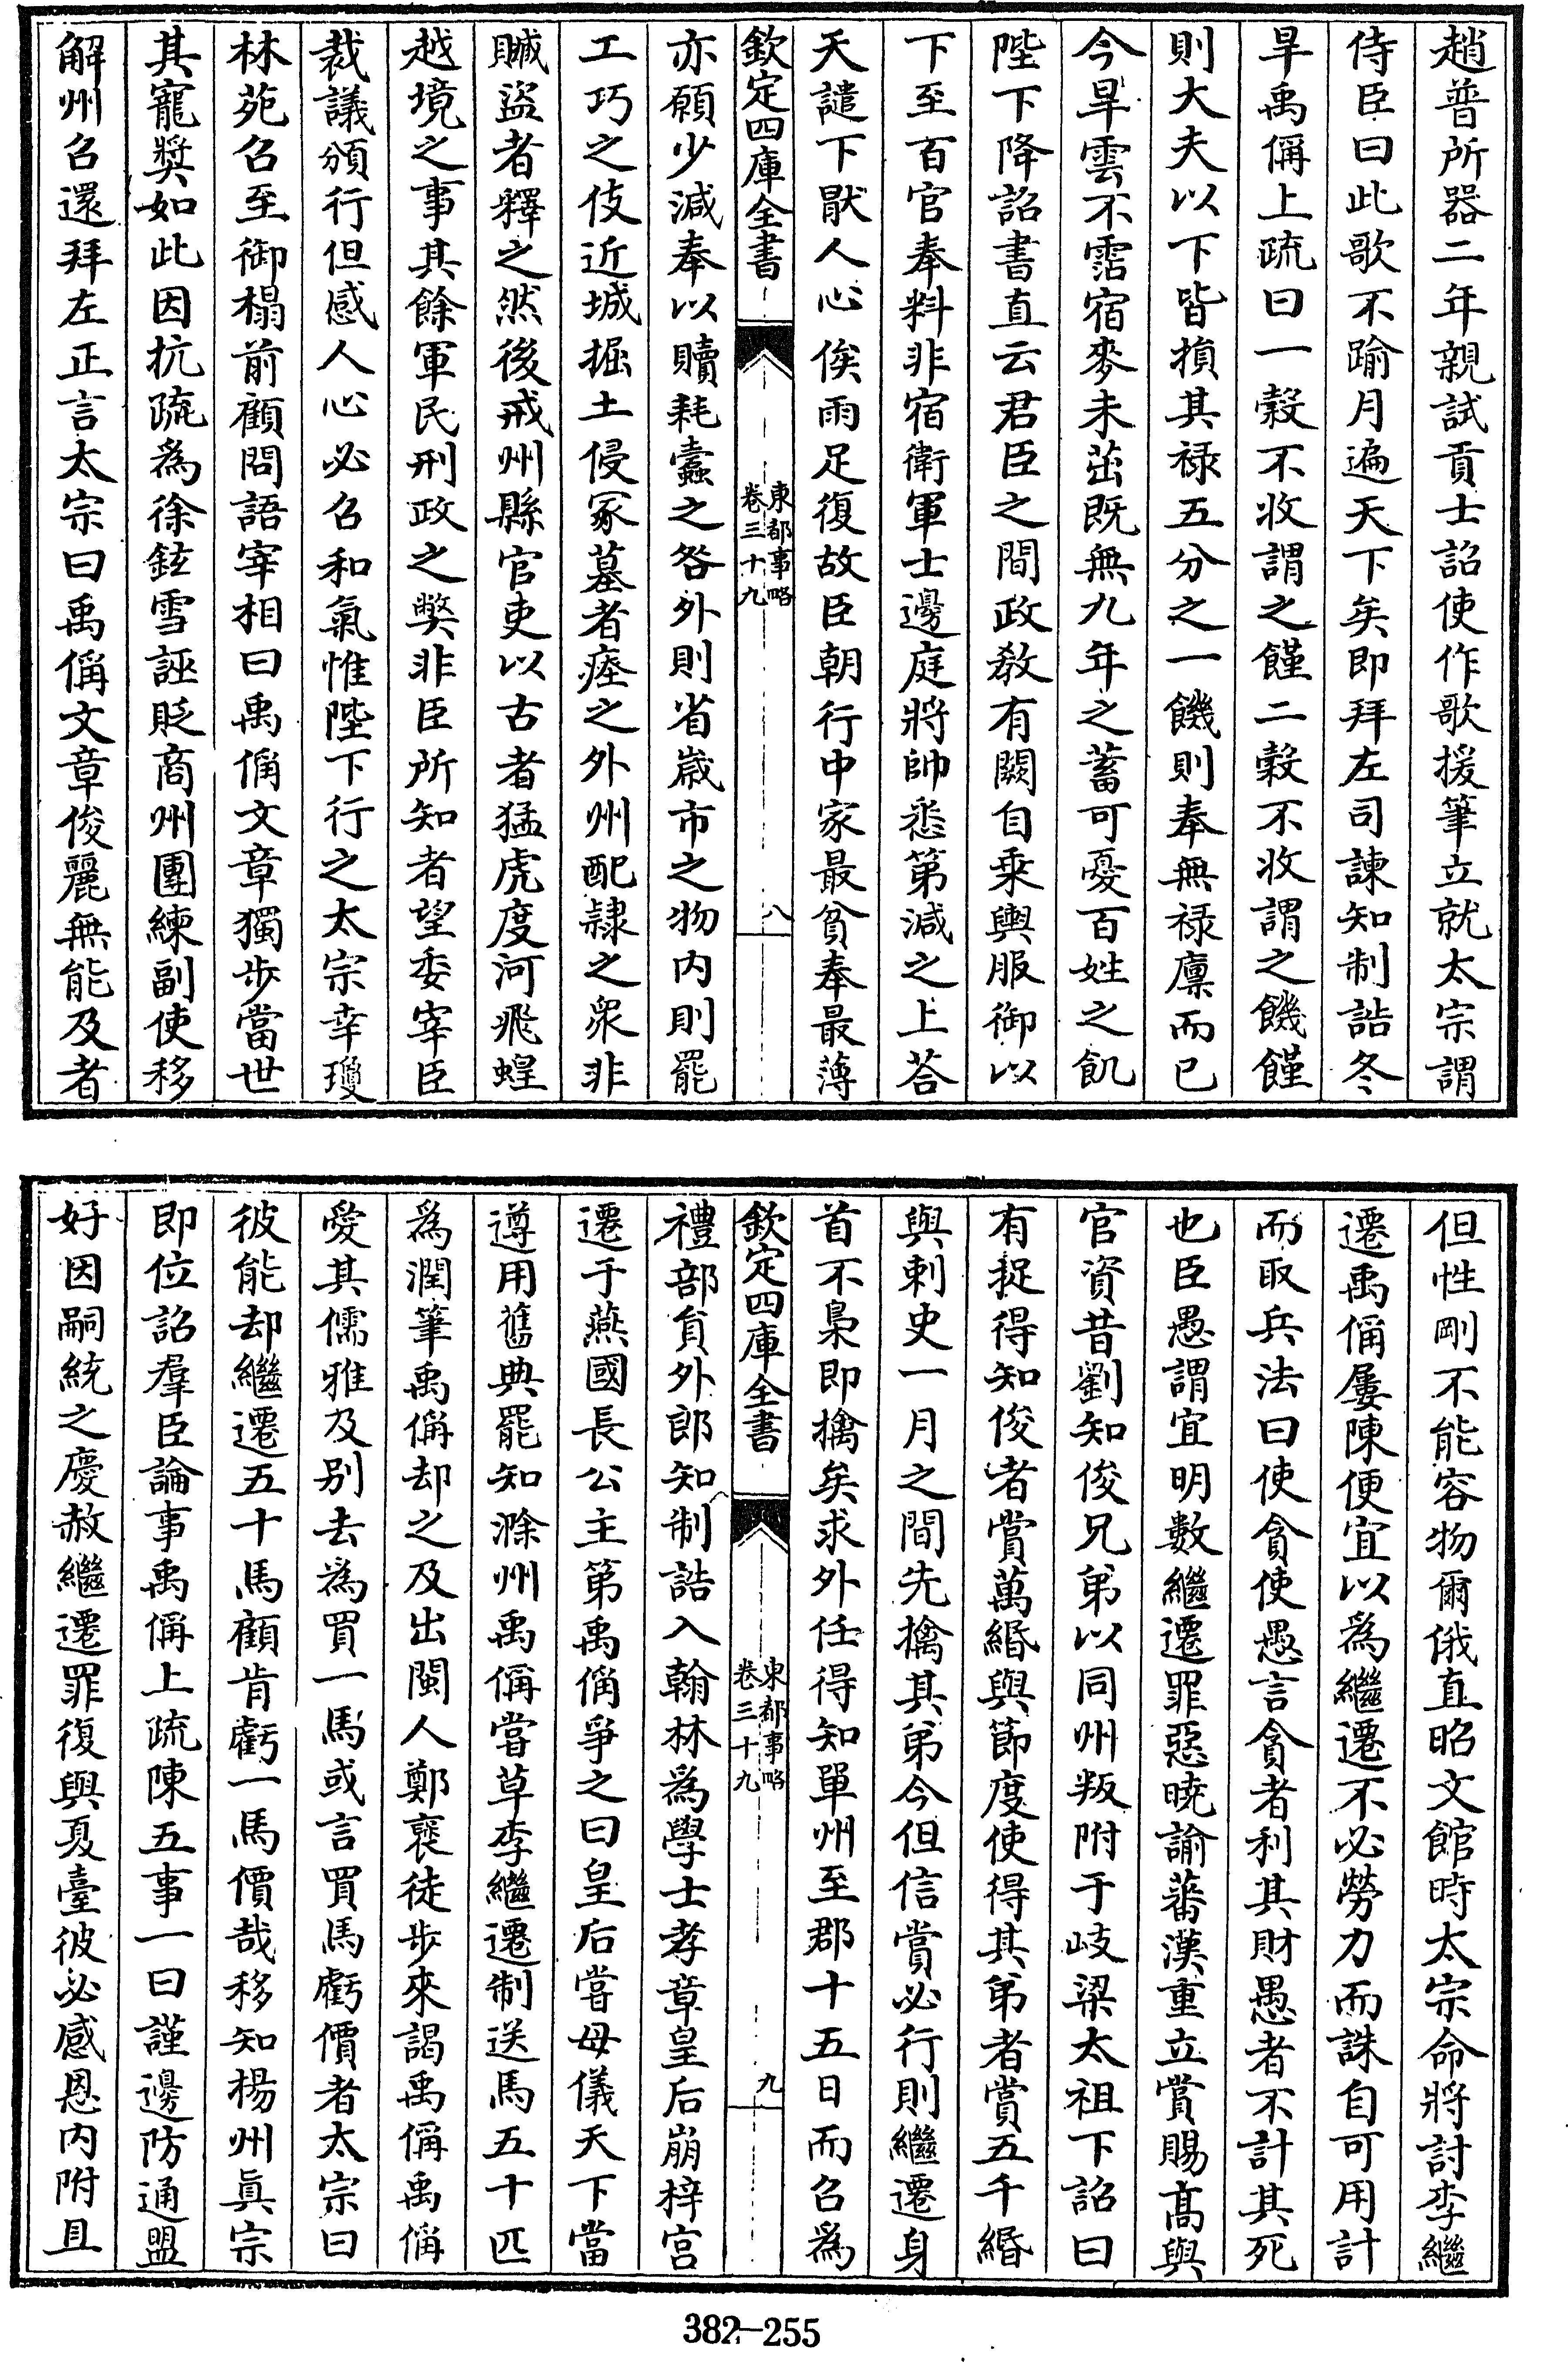 趙普所器二年親試貢士詔使作歌援筆立就太宗謂
侍臣曰此歌不踰月遍天下矣即拜左司諫知制誥冬
旱禹偁上疏曰一穀不收謂之饉二穀不收謂之饑饉
則大夫以下皆損其禄五分之一饑則奉無禄廪而已
今旱雲不霑宿麥未茁既無九年之蓄可憂百姓之飢
陛下降詔書直云君臣之間政教有闕自乘輿服御以
下至百官奉料非宿衛軍士邊庭將帥悉第減之上荅
天譴下厭人心俟雨足復故臣朝行中家最貧奉最薄
欽定四庫全書
東都事略
卷三十九
八
亦願少減奉以贖耗蠹之咎外則省歲市之物内則罷
工巧之伎近城掘土侵冢墓者瘞之外州配隷之衆非
贓盜者釋之然後戒州縣官吏以古者猛虎度河飛蝗
越境之事其餘軍民刑政之獘非臣所知者望委宰臣
裁議頒行但感人心必召和氣惟陛下行之太宗幸瓊
林苑召至御榻前顧問語宰相曰禹偁文章獨步當世
其寵奬如此因抗疏為徐鉉雪誣貶商州團練副使移
解州召還拜左正言太宗曰禹偁文章俊麗無能及者
但性剛不能容物爾俄直昭文館時太宗命將討李繼
遷禹偁屢陳便宜以為繼遷不必勞力而誅自可用計
而取兵法曰使貪使愚言貪者利其財愚者不計其死
也臣愚謂宜明數繼遷罪惡曉諭蕃漢重立賞賜高與
官資昔劉知俊兄弟以同州叛附于岐梁太祖下詔曰
有捉得知俊者賞萬緡與節度使得其弟者賞五千緡
與刺史一月之間先擒其弟今但信賞必行則繼遷身
首不梟即擒矣求外任得知單州至郡十五日而召為
欽定四庫全書
東都事略
卷三十九
九
禮部貟外郎知制誥入翰林為學士孝章皇后崩梓宫
遷于燕國長公主第禹偁爭之曰皇后嘗母儀天下當
遵用舊典罷知滁州禹偁嘗草李繼遷制送馬五十匹
為潤筆禹偁却之及出閩人鄭褒徒步來謁禹偁禹偁
愛其儒雅及别去為買一馬或言買馬虧價者太宗曰
彼能却繼遷五十馬顧肯虧一馬價哉移知揚州眞宗
即位詔羣臣論事禹偁上疏陳五事一曰謹邊防通盟
好因嗣統之慶赦繼遷罪復與夏臺彼必感恩内附且
382-255